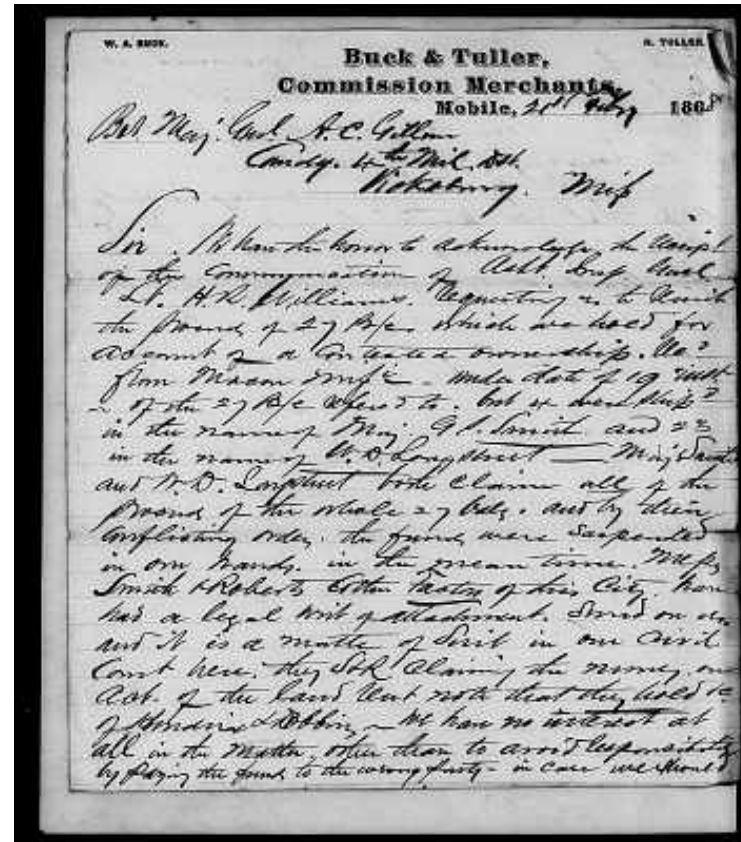 W. A. BUCK. R. TULLER.
Buck & Tuller,
Commission Merchants,
Mobile, 21st Feby 1868
Maj. Genl. A. C. Gillem
Comdg. 4th Mil. Dst.
Vicksburg. Miss
Sir. We have the honor to acknowledge the receipt
of the communication of Asst. Insp Genl
Lt. H. R. Williams. Requesting us to
the proceeds of 27 B/c which we hold for
account of a contested ownership.
from Macon Miss under date of 19 inst
of the 27 B/c referred to. but 4 were ship'd
in the name of Maj G. P. Smith and 23
in the name of W. D. Longstreet — Maj Smith
and W. D. Longstreet both claim all of the
proceeds of the whole 27 bales. and by their
conflicting orders. the funds were suspended
in our hands. in the mean time. Messrs
Smith & Roberts Cotton Factors of this City. have
had a legal writ of attachment. Served on us
and it is a matter of Suit in our Civil
Court here. they S&R claiming the money on
act. of the land Rent note that they hold
of Hendrix & Dobbins — We have no interest at
all in the matter. other than to avoid responsibility
by paying the funds to the wrong party — in case we should